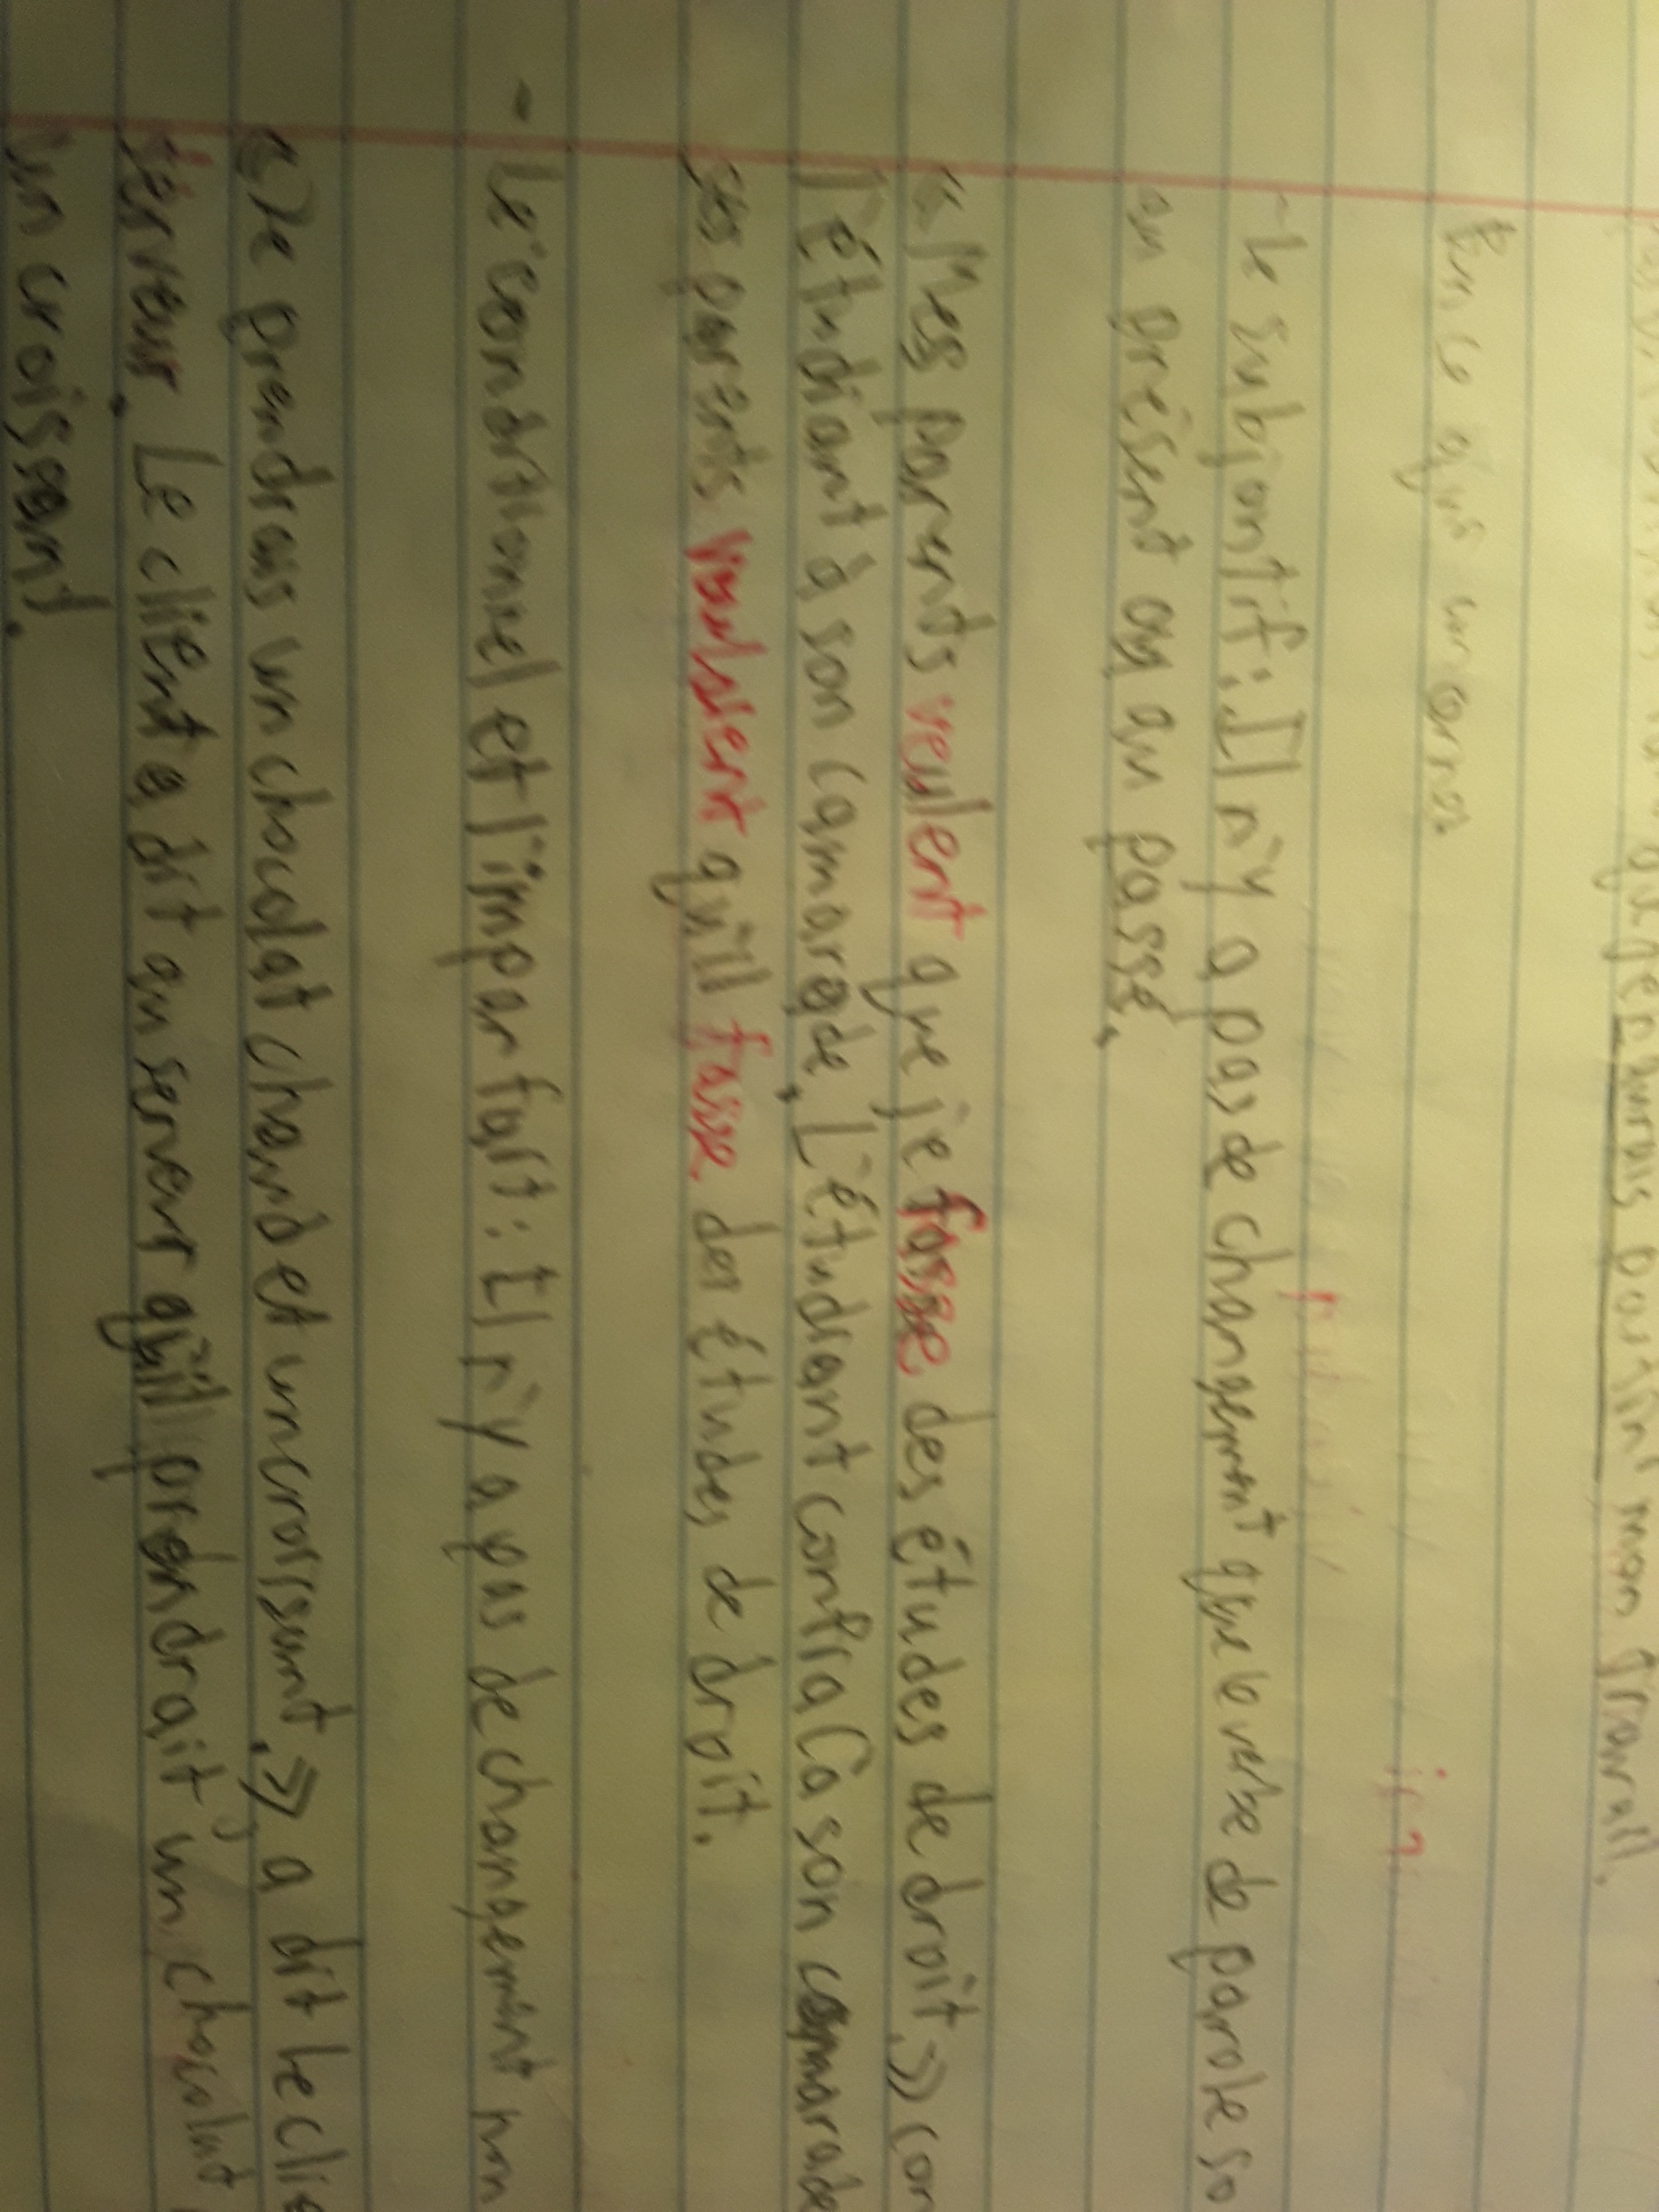 que j'aurais pour finir mon travail.
- Le subjontif: Il n'y a pas de changement que le verbe de parole so
au présent ou au passé.
« Mes parents veulent que je fasse des études de droit.» con
l'étudiant à son camarade. L'étudiant confia Ca son camarade
ses parents veulent qu'ill fasse des études de droit.
- Le conditionnel et l'imparfait: Il n'y a pas de changement
«Je prendrais un chocolat chaud et un croissant.» a dit le clie
serveur. Le client a dit au serveur qu'il prendrait un chocolat
un croissant.